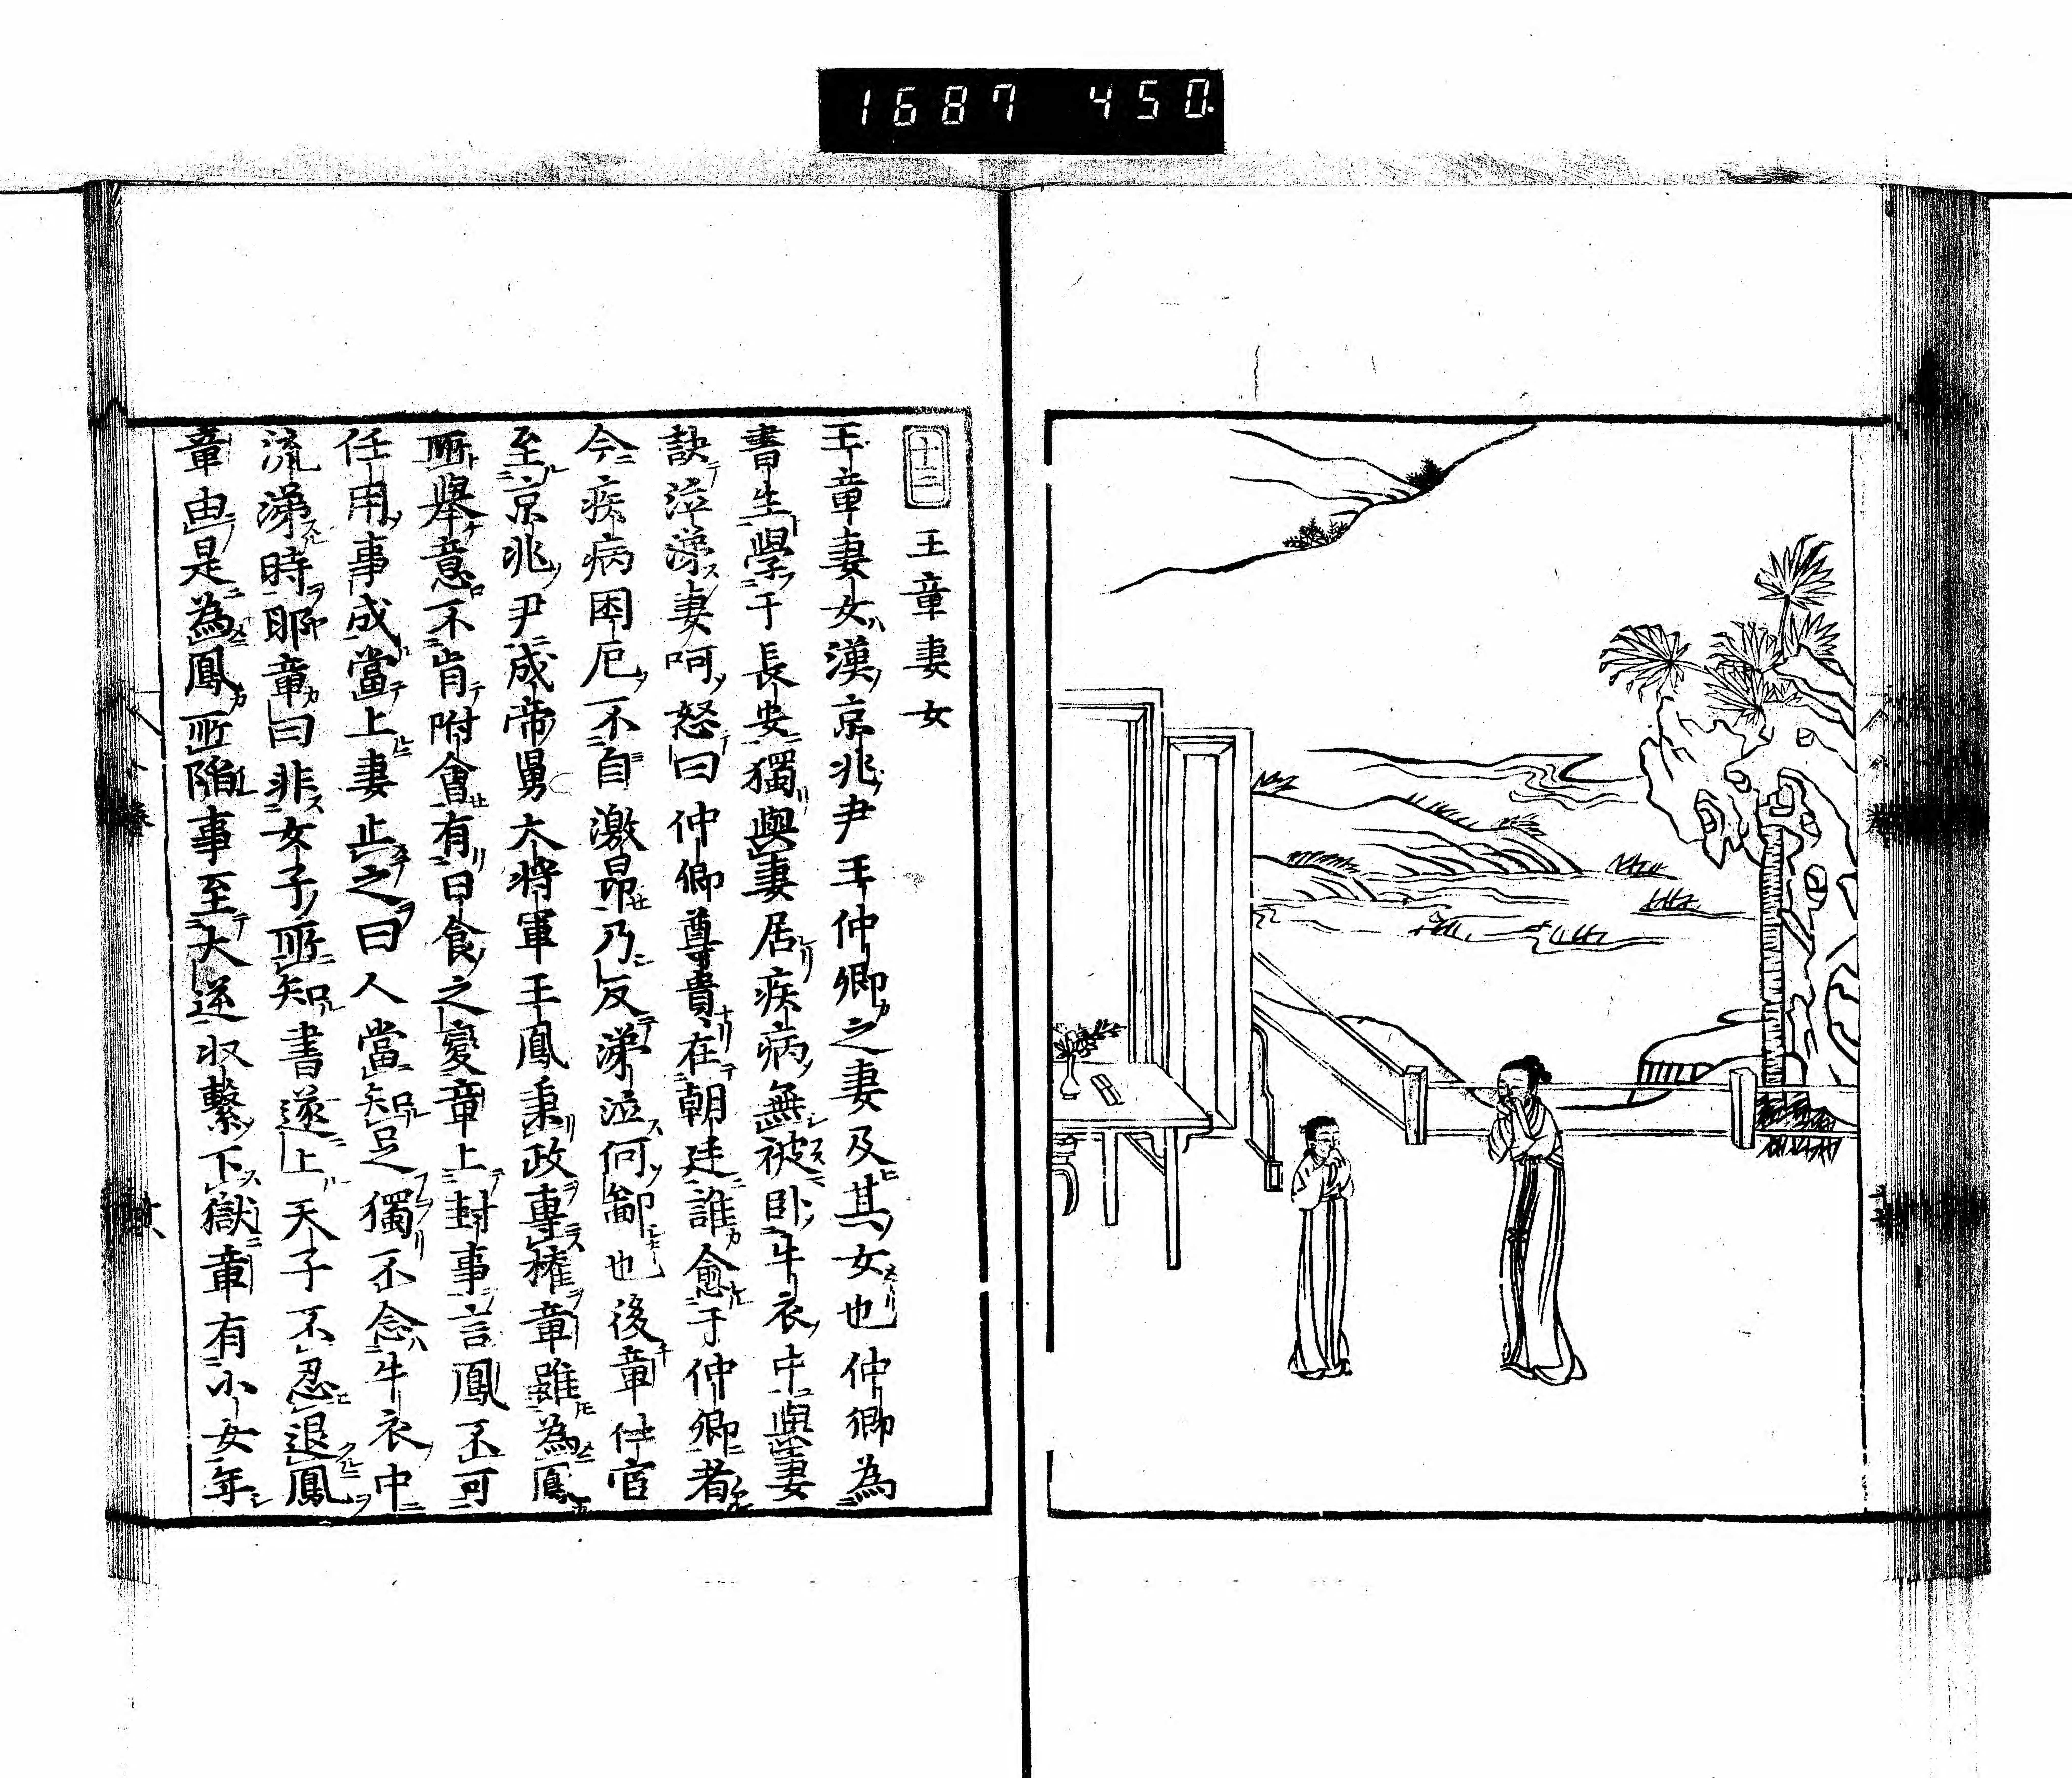 1687 450
十二 王章妻女
王章妻女漢京兆尹王仲卿之妻及其女也仲卿為
書生學于長安獨與妻居疾病無被卧牛衣中與妻
訣泣涕妻呵怒曰仲卿尊貴在朝廷誰愈于仲卿者
今疾病困厄不自激昂乃反涕泣何鄙也後章仕宦
至京兆尹成帝舅大將軍王鳳秉政專權章雖為鳳
所舉意不肯附會有日食之變章上封事言鳳不可
任用事成當上妻止之曰人當知足獨不念牛衣中
流涕時耶章曰非女子所知書遂上天子不忍退鳳
章由是為鳳所陷事至大逆收繫下獄章有小女年